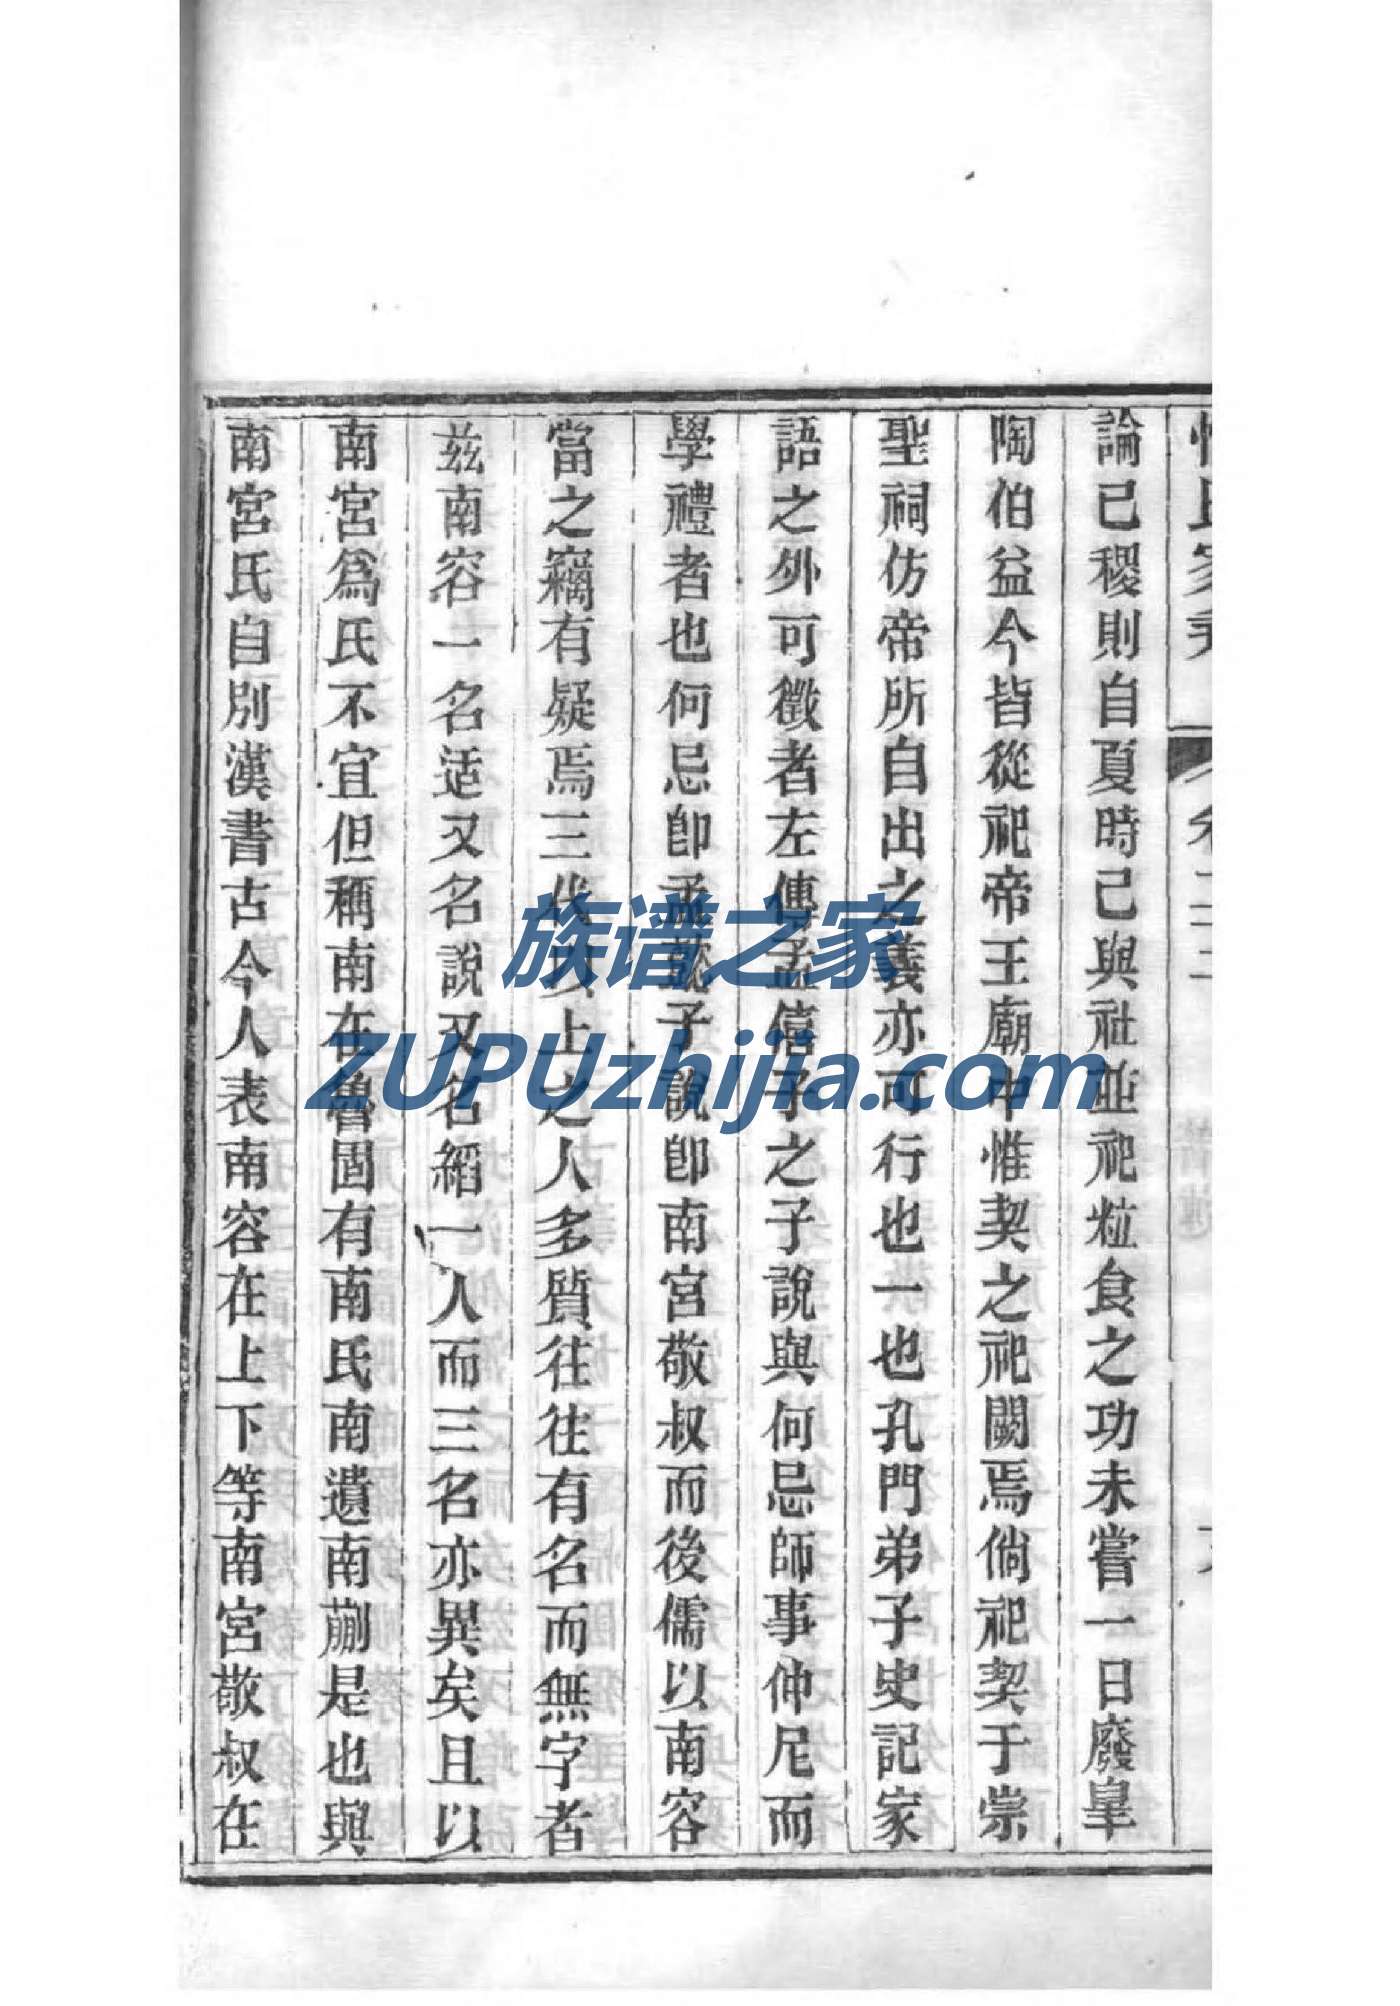 論己稷則自夏時己與社並祀粒食之功未嘗一日廢皐
陶伯益今皆從祀帝王廟中惟契之祀闕焉倘祀契于崇
聖祠仿帝所自出之義亦可行也一也孔門弟子史記家
語之外可徵者左傳孟僖子之子說與何忌師事仲尼而
學禮者也何忌卽孟懿子說卽南宮敬叔而後儒以南容
當之竊有疑焉三代以上之人多質往往有名而無字者
兹南容一名适又名說又名縚一人而三名亦異矣且以
南宮爲氏不宜但稱南在魯固有南氏南遺南蒯是也與
南宮氏自別漢書古今人表南容在上下等南宮敬叔在
族谱之家
ZUPUzhijia.com